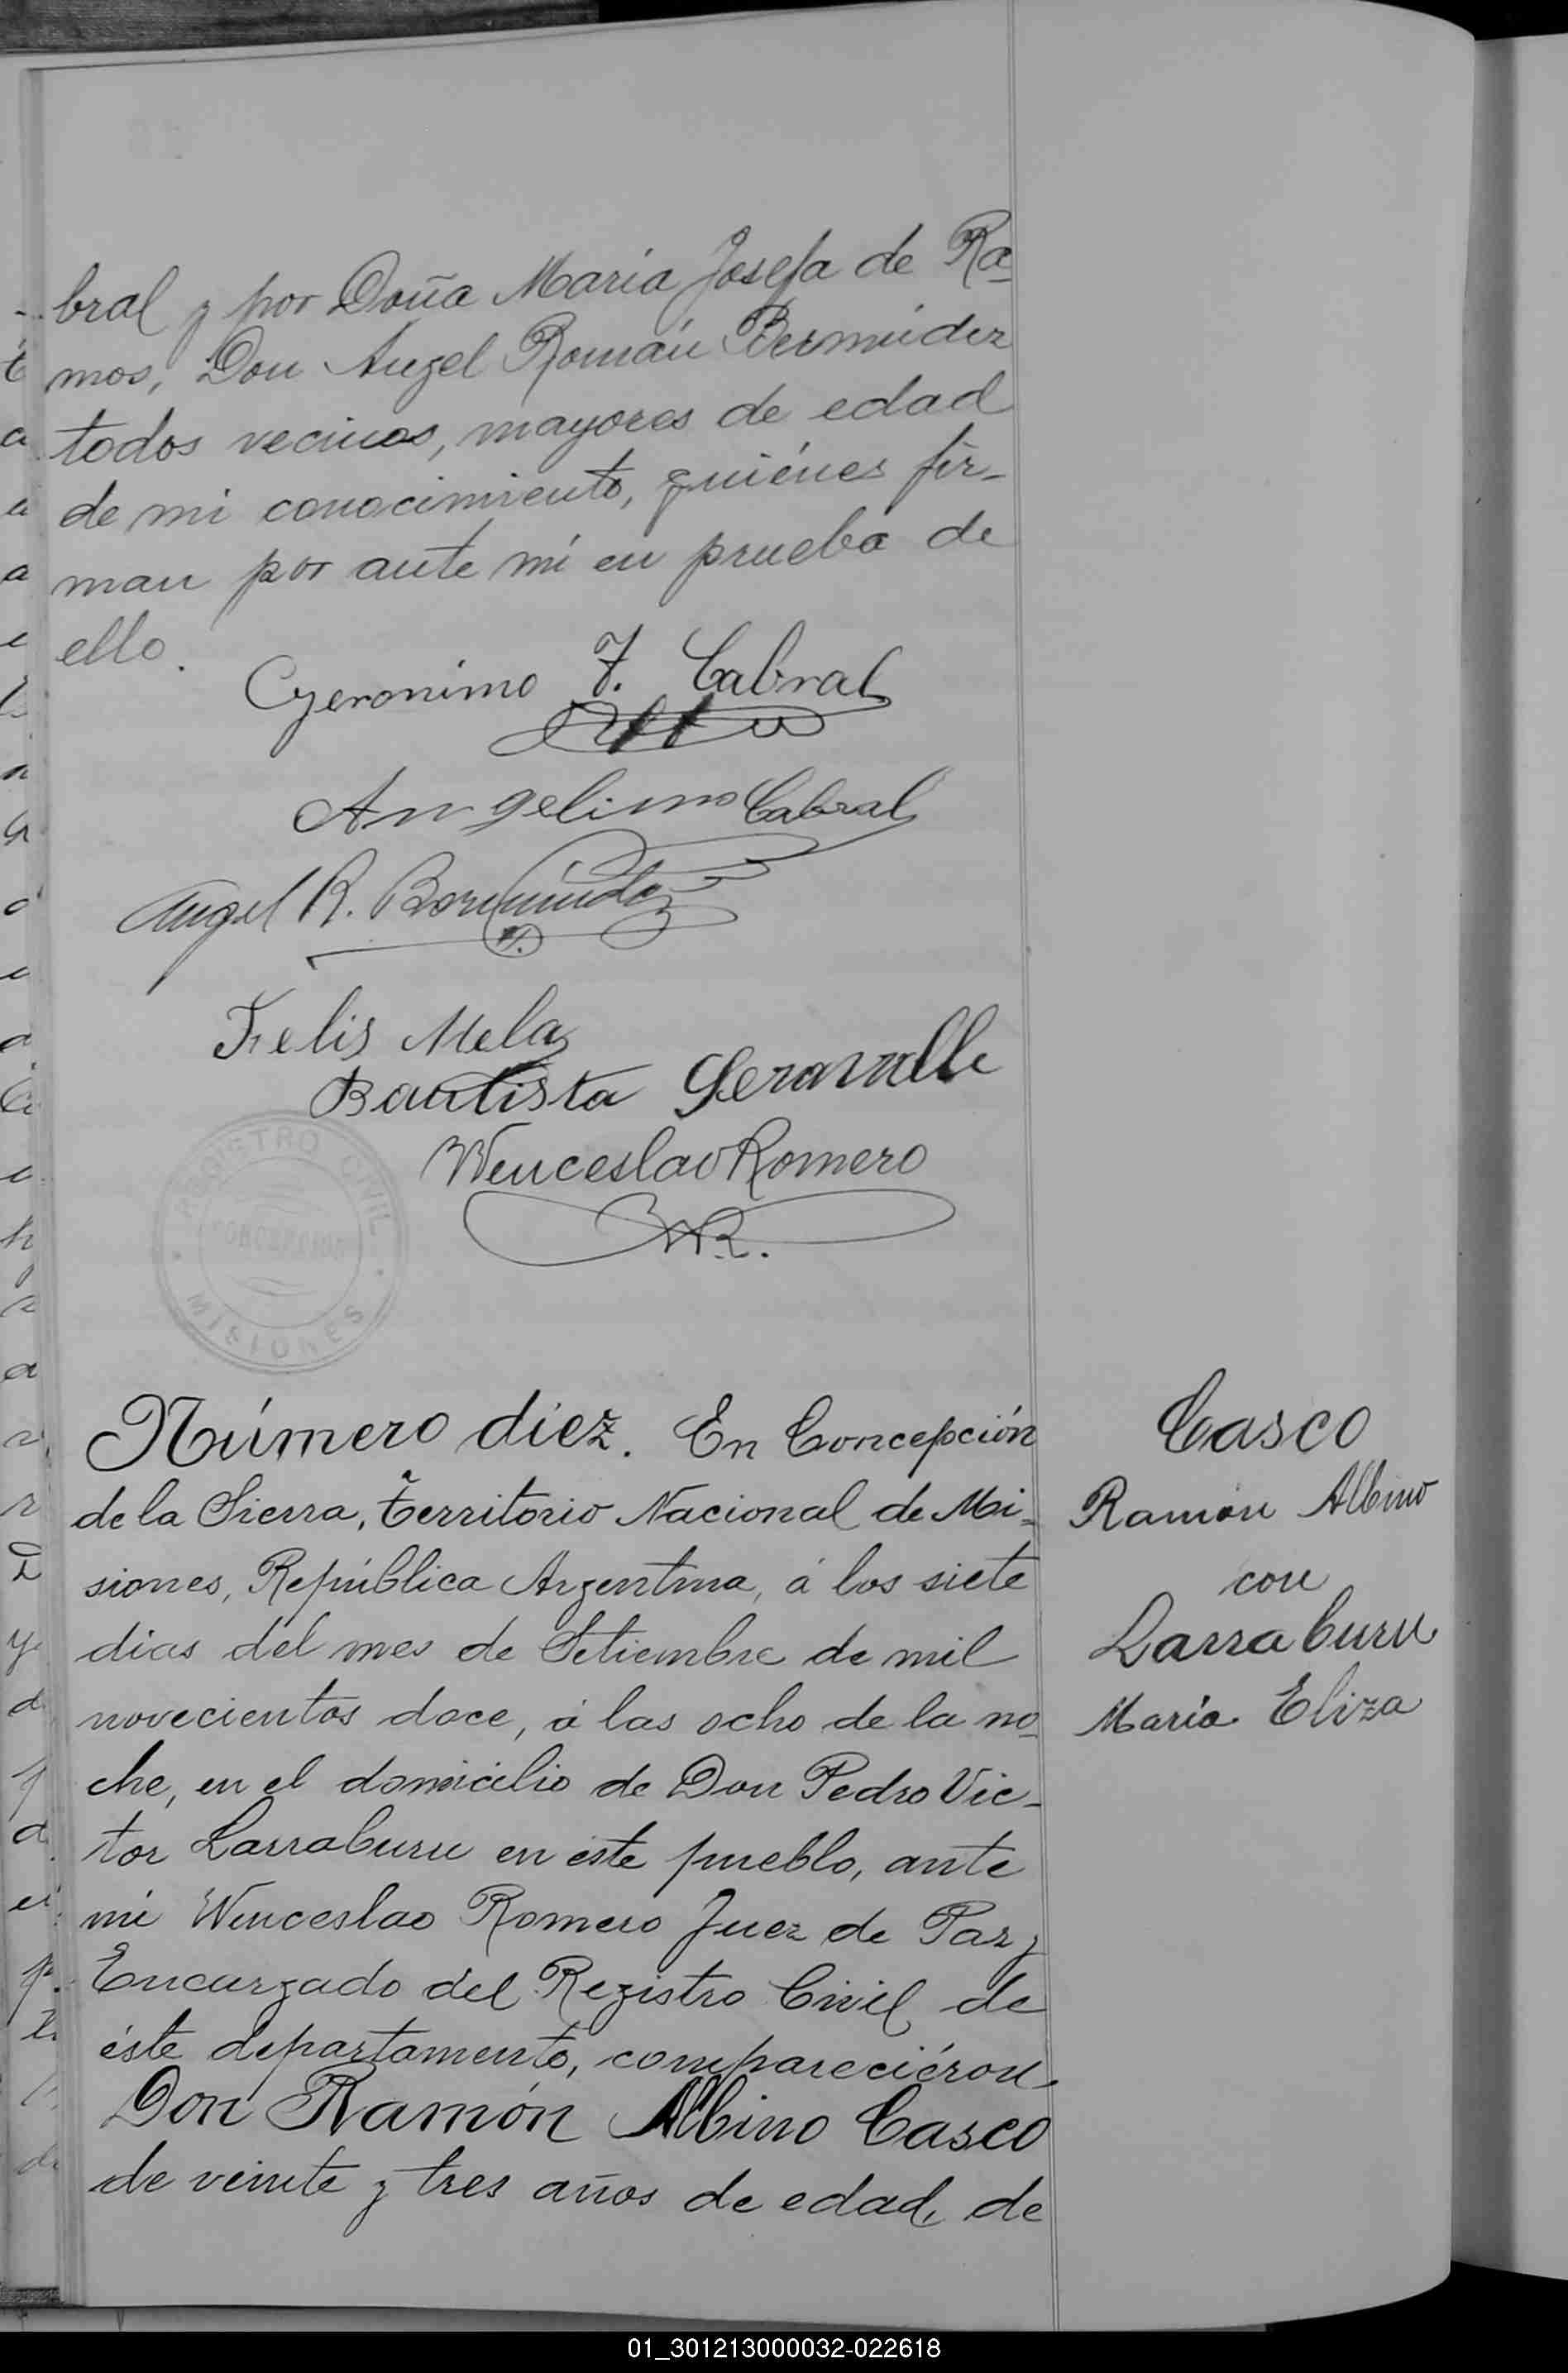 bral y por Doña María Josefa de Ra-
mos, Don Ángel Román Bermúdez
todos vecinos, mayores de edad
de mi conocimiento, quiénes fir-
man por ante mí en prueba de
ello.
Geronimo F. Cabral
Angelino Cabral
Angel R. Bermúdez
Felis Mela
Bautista Geravalle
Wenceslao Romero
WR.
REGISTRO CIVIL
MISIONES
Número diez. En Concepción
de la Sierra, territorio Nacional de Mi-
siones, República Argentina, á los siete
dias del mes de Setiembre de mil
novecientos doce, á las ocho de la no-
che, en el domicilio de Don Pedro Vic-
tor Larraburu en éste pueblo, ante
mi Wenceslao Romero Juez de Paz y
Encargado del Registro Civil de
éste departamento, compareciéron
Don Ramón Albino Casco
de veinte y tres años de edad, de
Casco
Ramón Albino
con
Larraburu
María Eliza
01_301213000032-022618